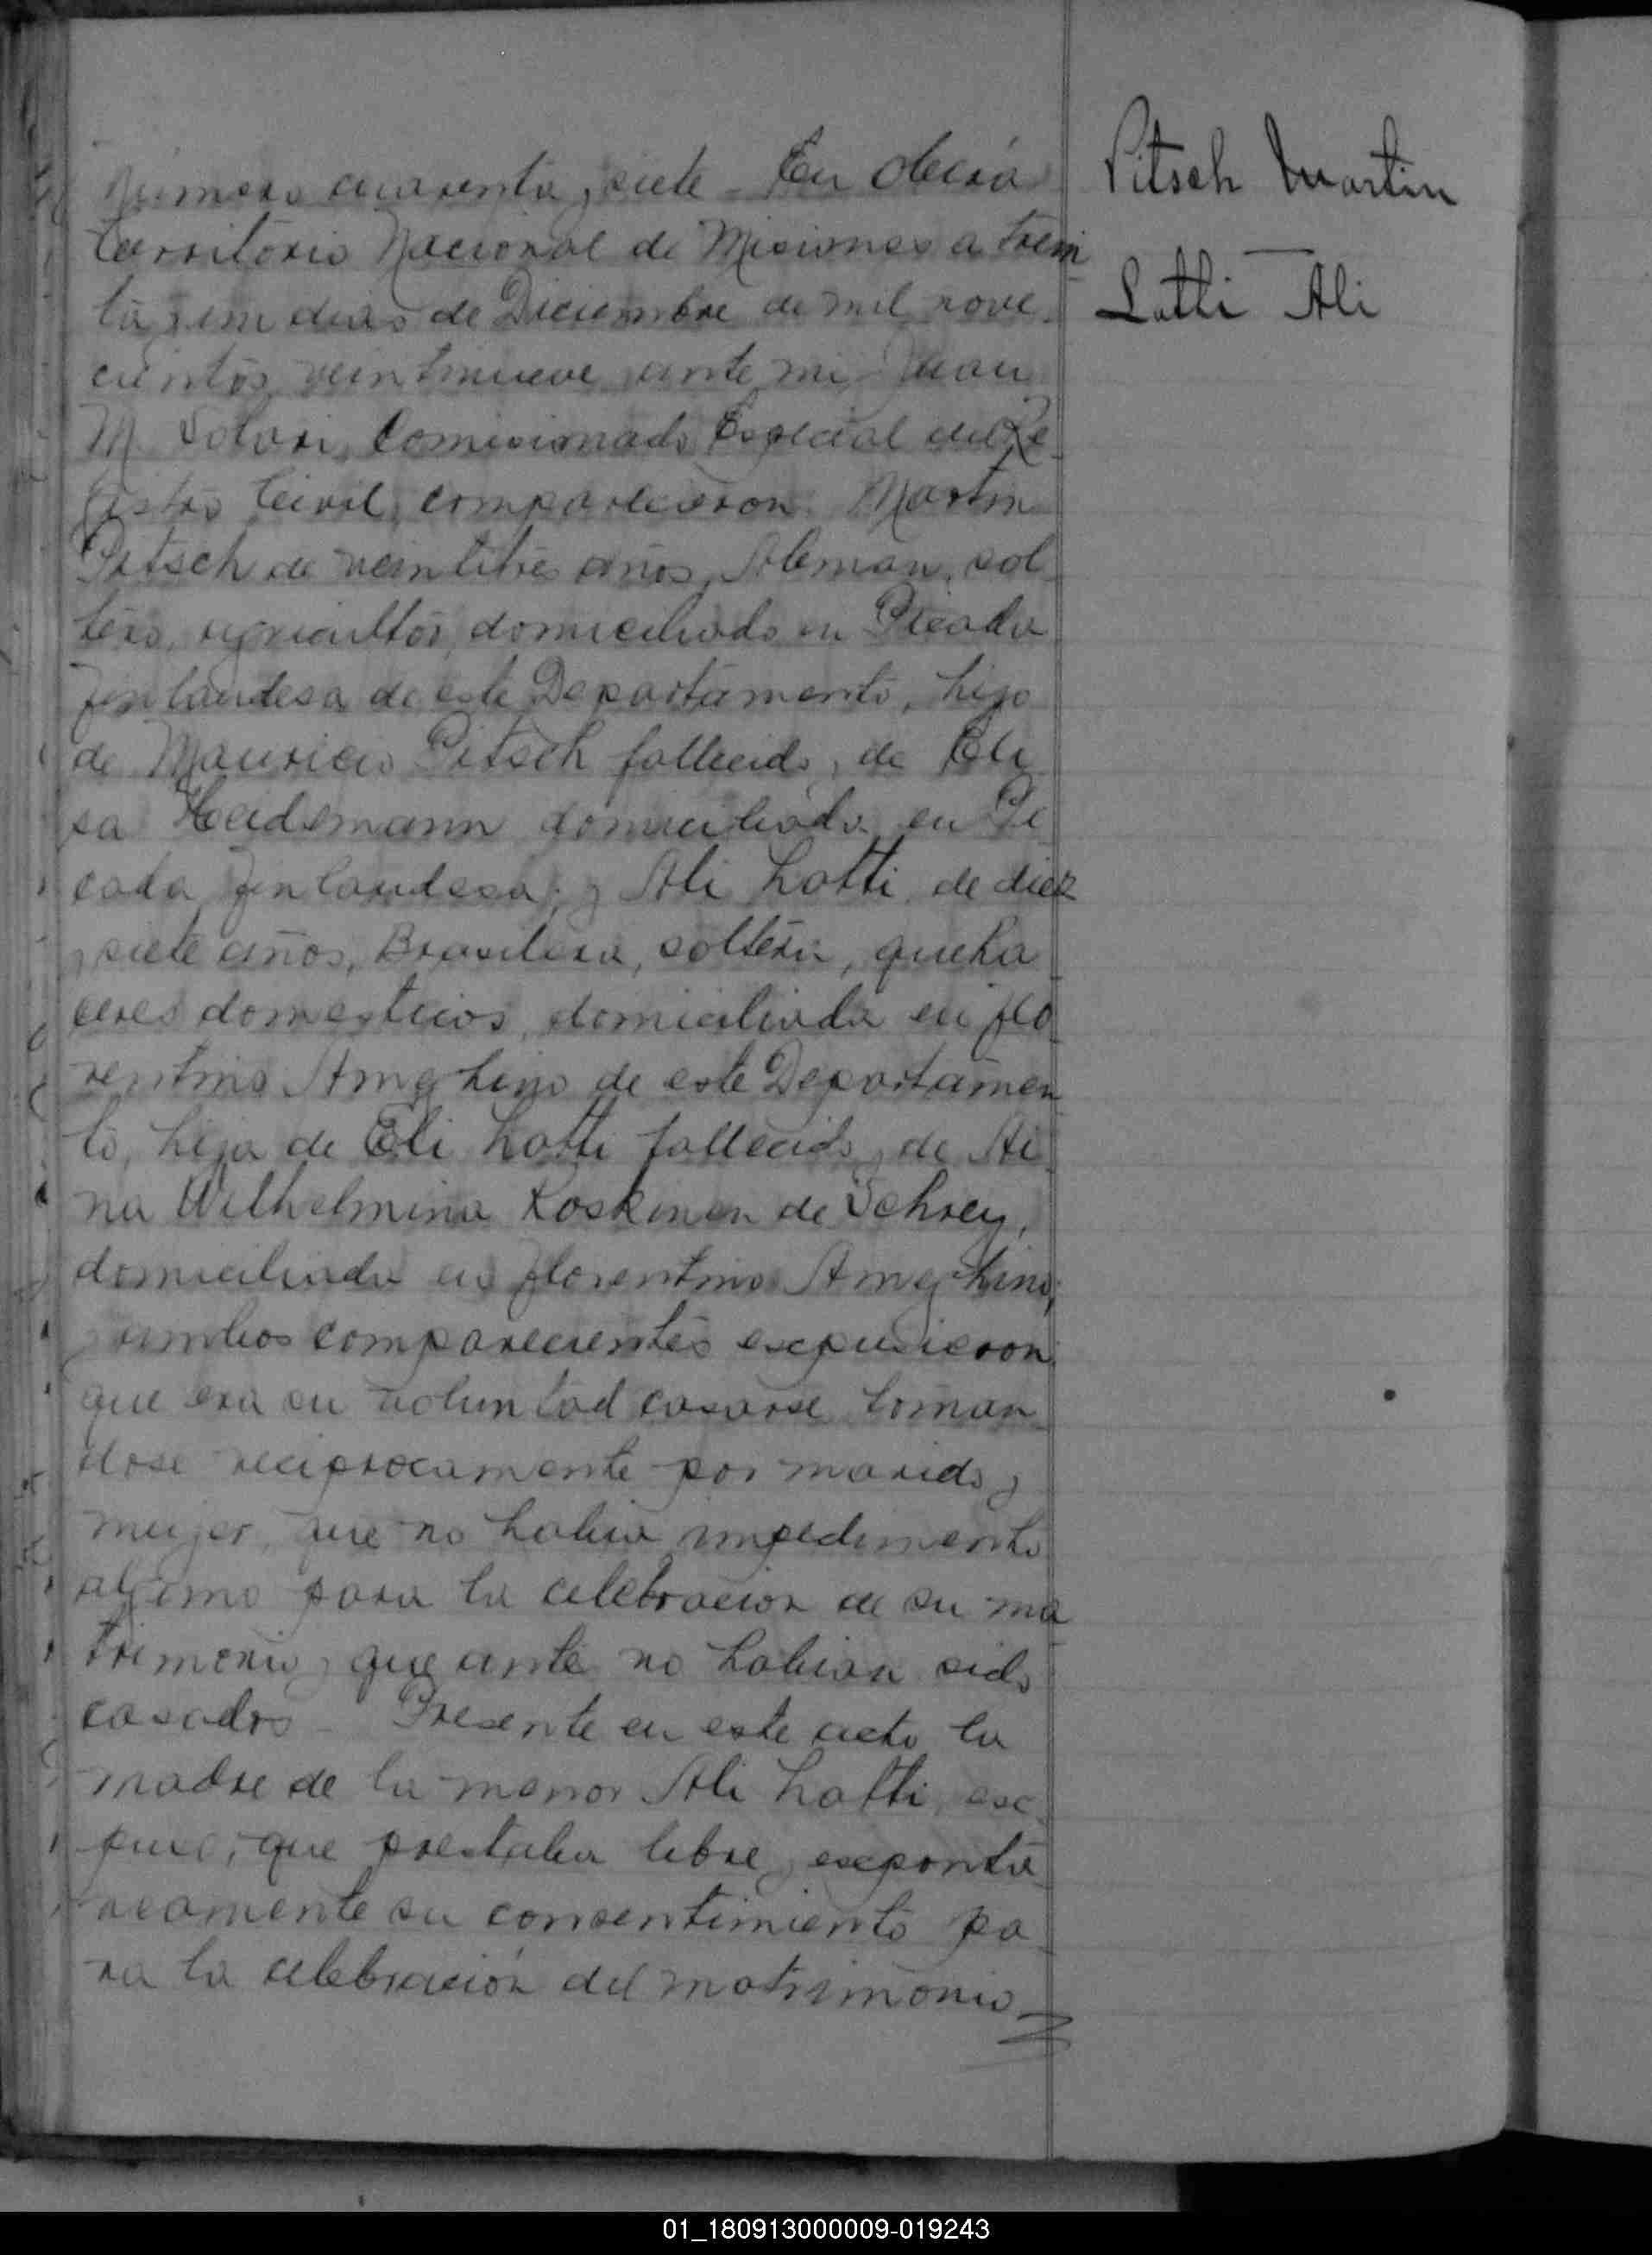 Número cuarenta y siete - En Oberá
territorio Nacional de Misiones a trein
ta y un dias de Diciembre de mil nove
cientos veintinueve ante mi Juan
M. Solari, Comisionado Especial del Re
gistro Civil, comparecieron: Martin
Pitsch de veintitres años, Aleman, sol
tero, agricultor, domiciliado en Picada
Finlandesa de este Departamento, hijo
de Mauricio Pitsch fallecido y de Eli
sa Heidemann domiciliada en Pi
cada Finlandesa; y Ali Latti de diez
y siete años, Brasilera, soltera, queha
ceres domesticos, domiciliada en Flo
rentino Ameghino de este Departamen
to, hija de Eli Latti fallecido y de Ai
na Wilhelmina Koskinen de Schrey,
domiciliada en Florentino Ameghino;
y ambos comparecientes expusieron:
que era su voluntad casarse toman
dose reciprocamente por marido y
mujer, que no habia impedimento
alguno para la celebracion de su ma
trimonio y que ante no habian sido
casados - Presente en este acto la
madre de la menor Ali Latti, ex
puso, que prestaba libre y exponta
neamente su consentimiento pa
ra la celebración del matrimonio
Pitsch Martin
Latti Ali
01_180913000009-019243